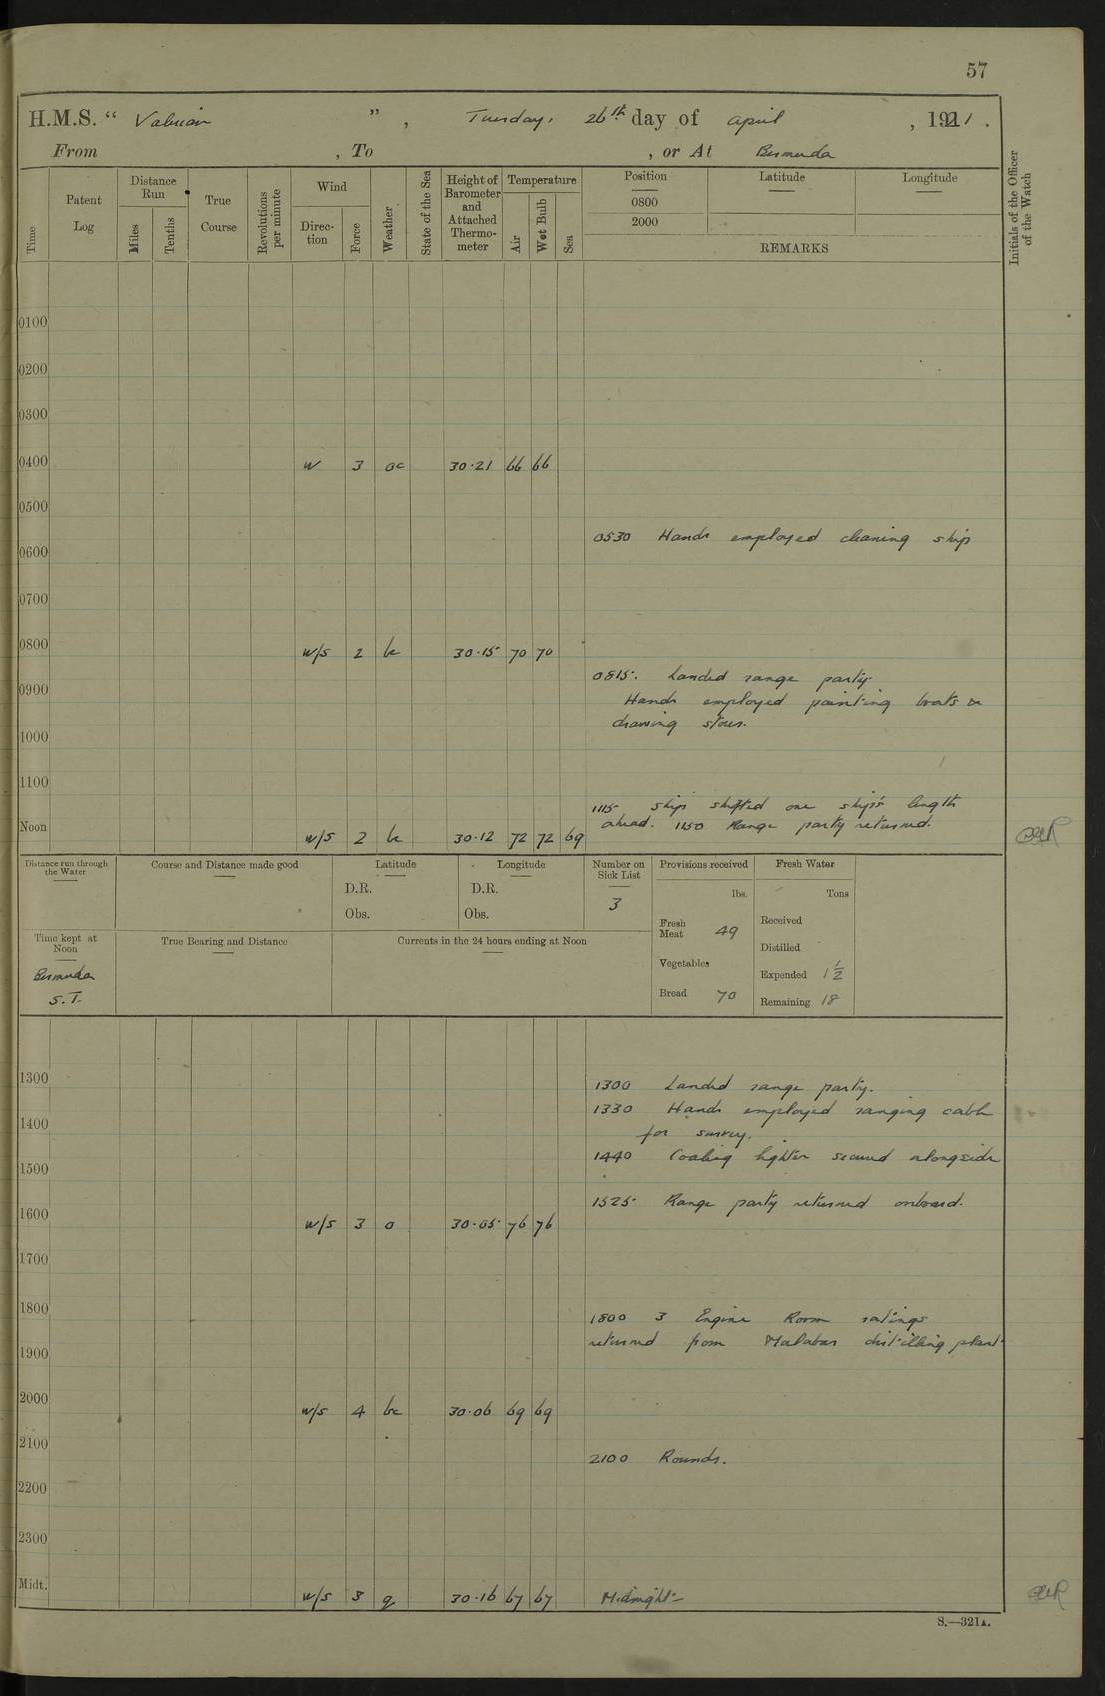 57
H.M.S. “ Valerian ” , Tuesday, 26th day of April , 1921 .
From , To , or At Bermuda
Time
Patent Log
Distance Run
Miles
Tenths
True Course
Revolutions per minute
Wind
Direction
Force
Weather
State of the Sea
Height of Barometer and Attached Thermometer
Temperature
Air
Wet Bulb
Sea
Position
0800
2000
Latitude
Longitude
REMARKS
Initials of the Officer of the Watch
0100
0200
0300
0400 W 3 oc 30.21 66 66
0500
0530 Hands employed cleaning ship
0600
0700
0800 W/S 2 bc 30.15 70 70
0815. Landed range party.
0900
Hands employed painting boats &
drawing stores.
1000
1100
1115 Ship shifted one ship's length
ahead. 1150 Range party returned.
Noon W/S 2 bc 30.12 72 72 69
Distance run through the Water
Course and Distance made good
Latitude
D.R.
Obs.
Longitude
D.R.
Obs.
Number on Sick List
3
Provisions received
lbs.
Fresh Meat 49
Vegetables
Bread 70
Fresh Water
Tons
Received
Distilled
Expended 1 1/2
Remaining 18
Time kept at Noon
Bermuda
S.T.
True Bearing and Distance
Currents in the 24 hours ending at Noon
1300
1300 Landed range party.
1330 Hands employed ranging cable
1400
for survey.
1440 Coaling lighter secured alongside
1500
1525 Range party returned onboard.
1600 W/S 3 o 30.05 76 76
1700
1800
1800 3 Engine Room ratings
returned from Malabar distilling plant
1900
2000 W/S 4 bc 30.06 69 69
2100
2100 Rounds.
2200
2300
Midt. W/S 3 q 30.16 67 67 Midnight
S.—321A.